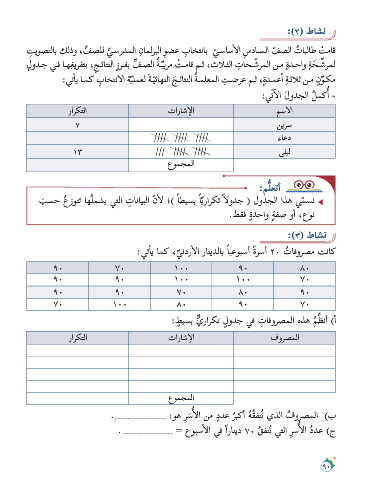 نشاط (٢):
قامتْ طالباتُ الصفِّ السادسِ الأساسيِّ بانتخابِ عضوِ البرلمانِ المدرسيِّ للصفِّ، وذلك بالتصويتِ
لمرشّحَةٍ واحدةٍ من المرشّحاتِ الثلاث، ثم قامتْ مربيّةُ الصفِّ بفرزِ النتائجِ، بتفريغِها في جدولٍ
مكوّنٍ من ثلاثةِ أعمدةٍ، ثم عرضتِ المعلمةُ النتائجَ النهائيّةَ لعمليّةِ الانتخابِ كما يأتي:
- أُكملُ الجدولَ الآتي:
الاسم الإشارات التكرار
سرين ٧
دعاء //// //// ////
ليلى //// //// /// ١٣
المجموع
أتعلّم:
نسمّي هذا الجدول ( جدولاً تكراريّاً بسيطاً )؛ لأنّ البيانات التي يشملُها تتوزعُ حسبَ
نوعٍ، أو صفةٍ واحدةٍ فقط.
نشاط (٣):
كانت مصروفاتُ ٢٠ أسرةً أسبوعياً بالدينارِ الأردنيِّ، كما يأتي:
٨٠ ٩٠ ١٠٠ ٧٠ ٩٠
٧٠ ١٠٠ ١٠٠ ٩٠ ٩٠
٩٠ ٨٠ ٧٠ ٩٠ ٩٠
٧٠ ٩٠ ٨٠ ١٠٠ ٧٠
أ) أنظّمُ هذه المصروفاتِ في جدولٍ تكراريٍّ بسيطٍ:
المصروف الإشارات التكرار
المجموع
ب) المصروفُ الذي تُنفقُهُ أكبرُ عددٍ من الأُسَرِ هو: ________.
ج) عددُ الأُسَرِ التي تُنفقُ ٧٠ ديناراً في الأسبوع = ________.
٩٠